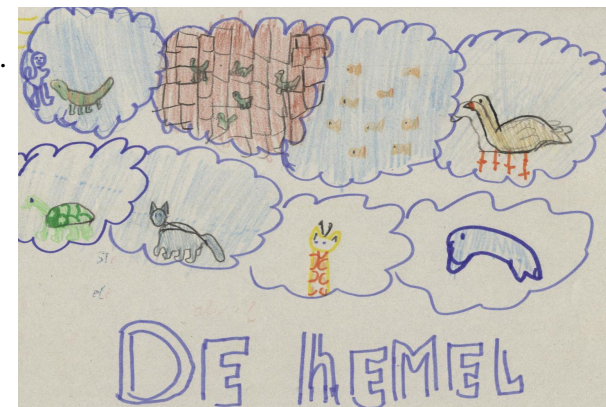 DE hEMEL